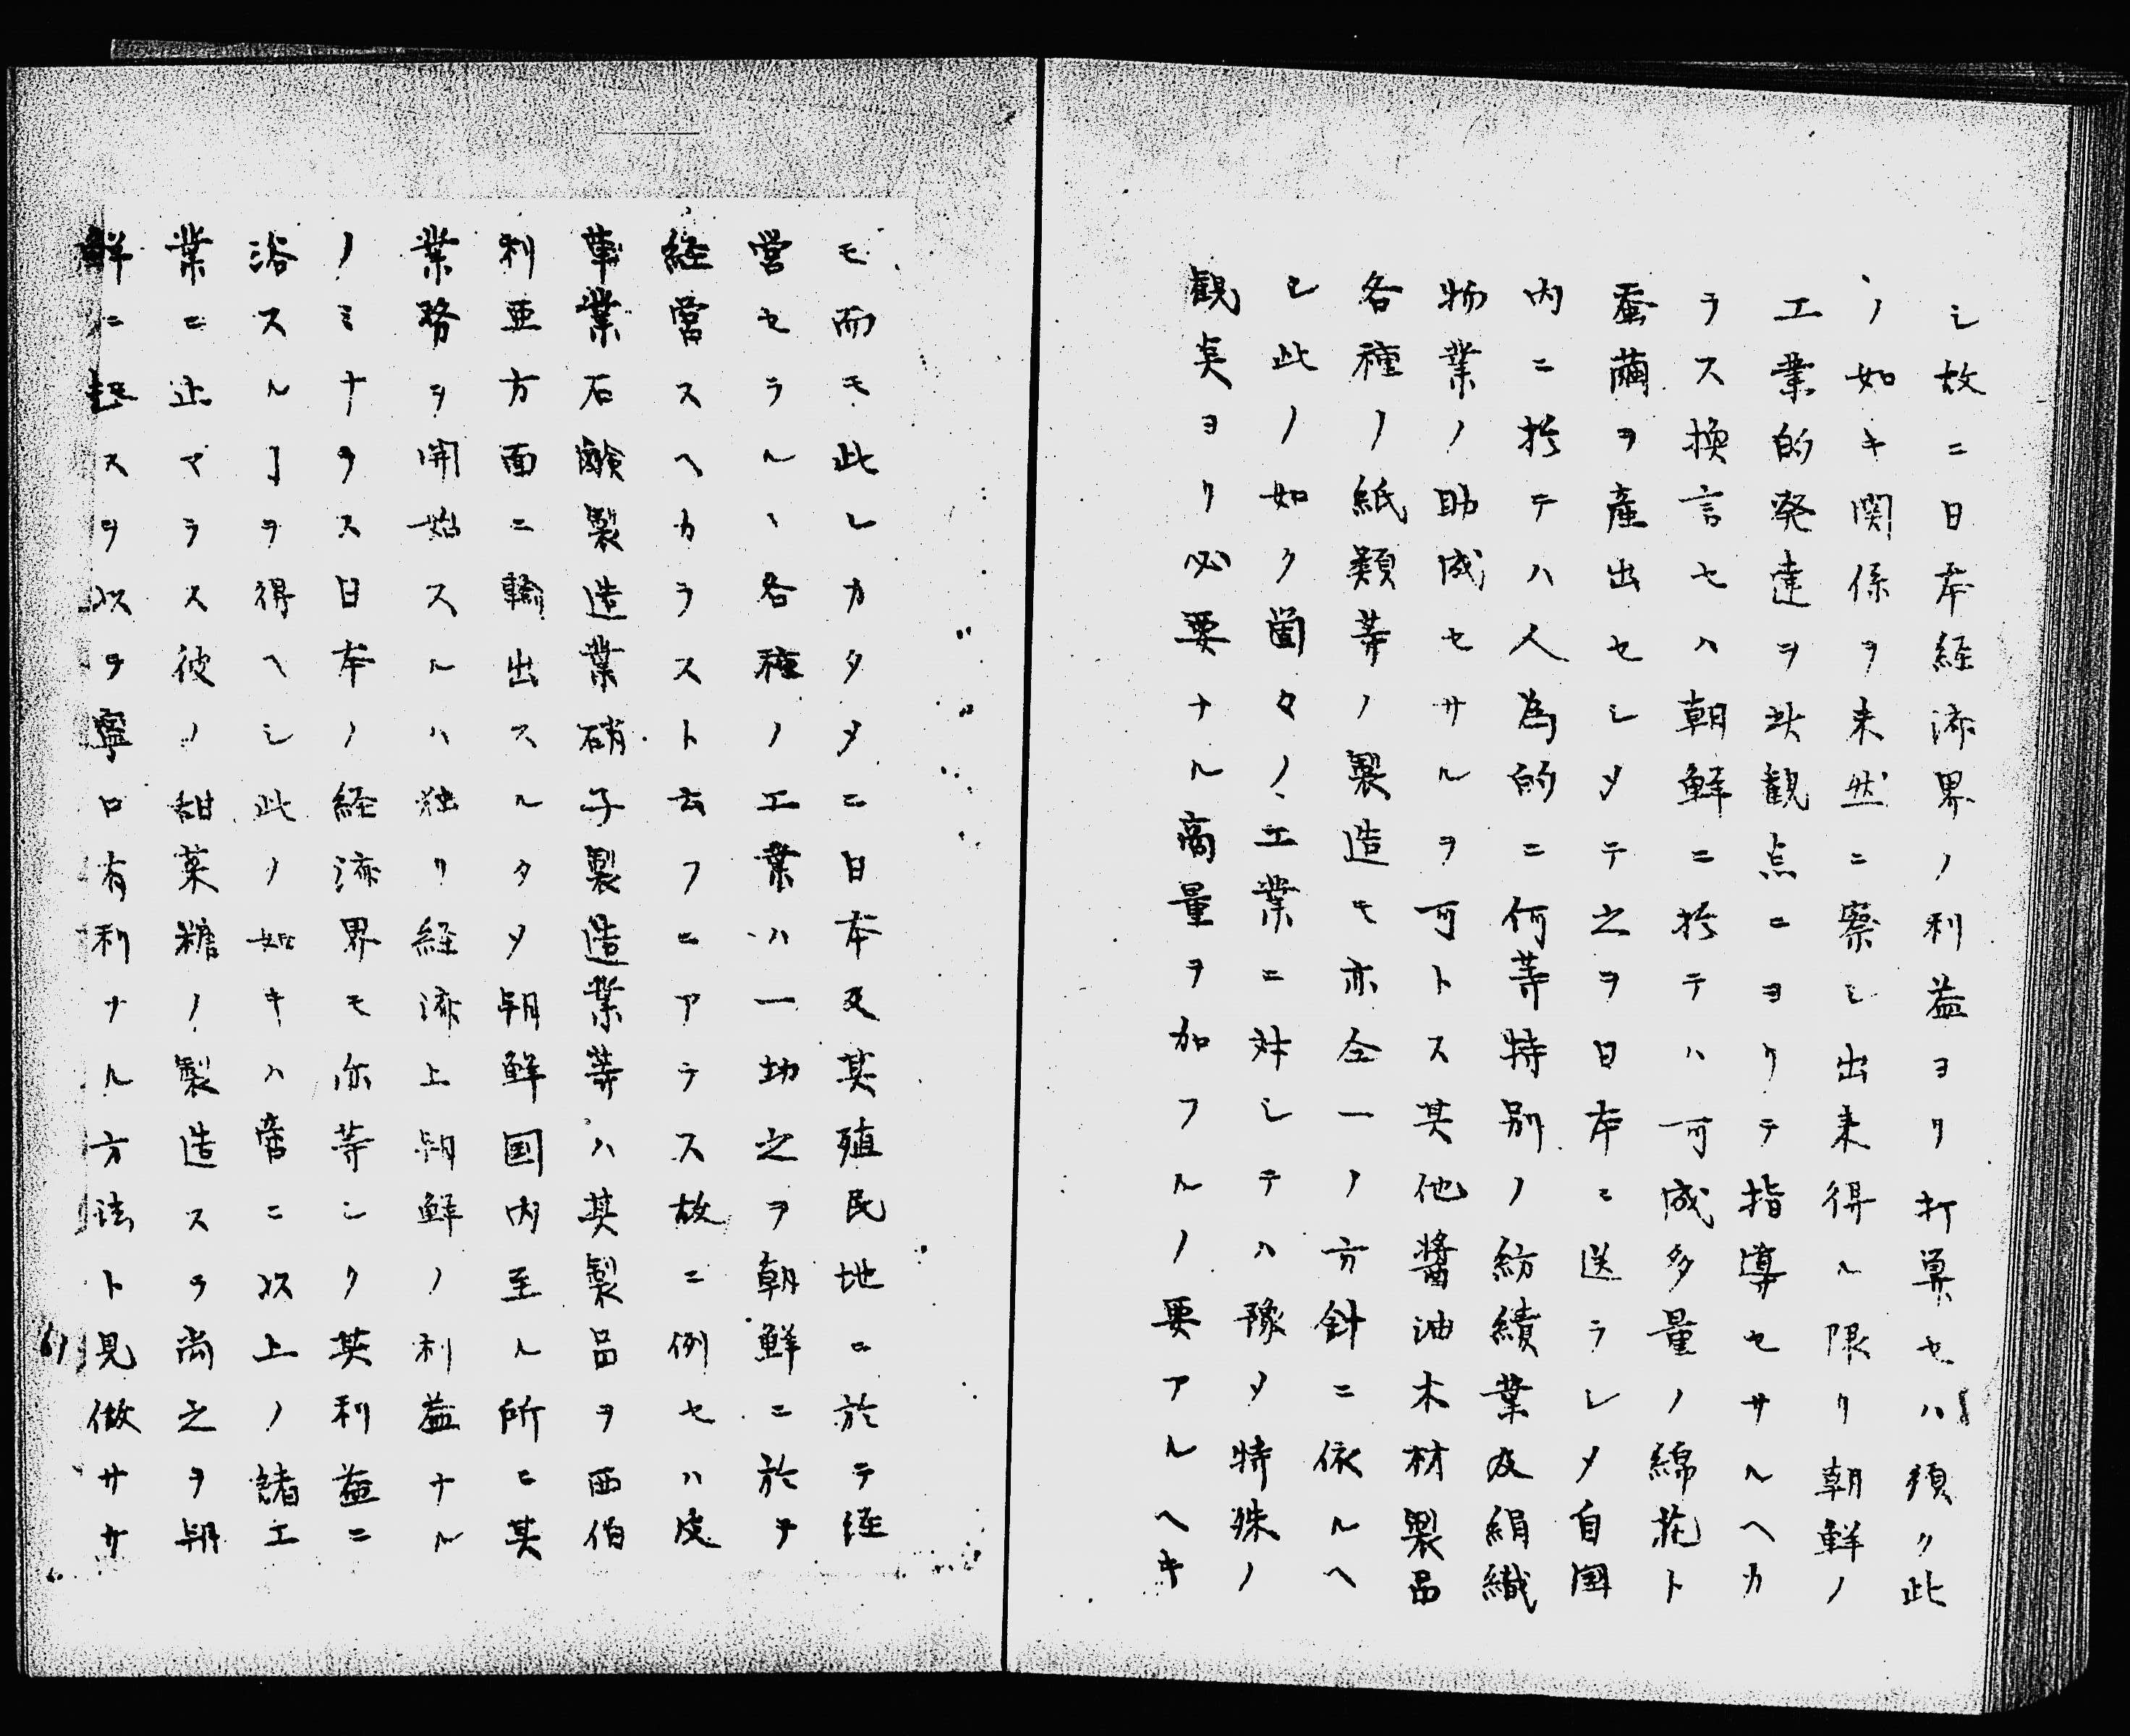 シ故ニ日本経済界ノ利益ヨリ打算セハ須ク此
ノ如キ関係ヲ未然ニ察シ出来得ル限リ朝鮮ノ
工業的発達ヲ此観点ニヨリテ指導セサルヘカ
ラス換言セハ朝鮮ニ於テハ可成多量ノ綿花ト
蚕繭ヲ産出セシメテ之ヲ日本ニ送ラレメ自国
内ニ於テハ人為的ニ何等特別ノ紡績業及絹織
物業ノ助成セサルヲ可トス其他醬油木材製品
各種ノ紙類等ノ製造モ亦仝一ノ方針ニ依ルヘ
シ此ノ如ク箇々ノ工業ニ対シテハ豫メ特殊ノ
観美ヨリ必要ナル商量ヲ加フルノ要アルヘキ
モ而モ此レカタメニ日本及其殖民地ニ於テ経
営セラル丶各種ノ工業ハ一切之ヲ朝鮮ニ於テ
経営スヘカラスト云フニアラス故ニ例セハ皮
革業石鹸製造業硝子製造業等ハ其製品ヲ西伯
利亜方面ニ輸出スルタメ朝鮮国内至ル所ニ其
業務ヲ開始スルハ独リ経済上朝鮮ノ利益ナル
ノミナラス日本ノ経済界モ亦等シク其利益ニ
浴スルヿヲ得ヘシ此ノ如キハ啻ニ以上ノ諸工
業ニ止マラス彼ノ甜菜糖ノ製造スラ尚之ヲ朝
鮮ニ起スヲ以ヲ寧ロ有利ナル方法ト見做ササ
61